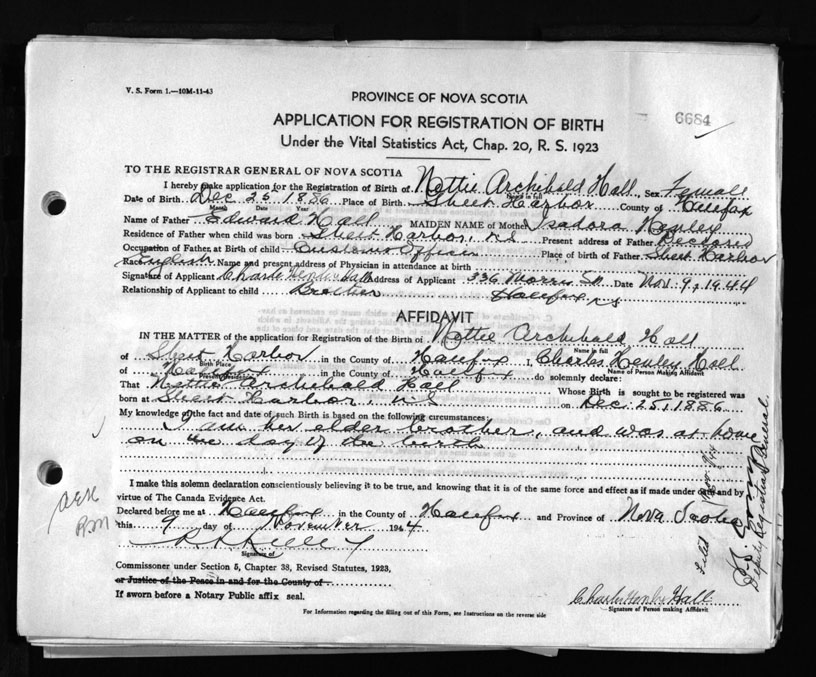 V. S. Form 1.—10M-11-43
PROVINCE OF NOVA SCOTIA
6684
APPLICATION FOR REGISTRATION OF BIRTH
Under the Vital Statistics Act, Chap. 20, R. S. 1923
TO THE REGISTRAR GENERAL OF NOVA SCOTIA
I hereby make application for the Registration of Birth of Nettie Archibald Hall, Sex Female
Name in full
Date of Birth Dec 25 1886 Place of Birth Sheet Harbor County of Halifax
Month Date Year
Name of Father Edward Hall MAIDEN NAME of Mother Isadora Henley
Residence of Father when child was born Sheet Harbor, N.S Present address of Father Deceased
Occupation of Father at Birth of child Customs Officer Place of birth of Father Sheet Harbor
Race English Name and present address of Physician in attendance at birth
Signature of Applicant Charles Henley Hall Address of Applicant 336 Morris St Date Nov. 9, 1944
Relationship of Applicant to child Brother Halifax N S
AFFIDAVIT
IN THE MATTER of the application for Registration of the Birth of Nettie Archibald Hall
Name in full
of Sheet Harbor in the County of Halifax I, Charles Henley Hall
Birth Place Name of Person Making Affidavit
of Halifax in the County of Halifax do solemnly declare:
That Nettie Archibald Hall Whose Birth is sought to be registered was
born at Sheet Harbor, N S on Dec. 25, 1886
My knowledge of the fact and date of such Birth is based on the following circumstances:
I am her elder brother, and was at home
on the day of the birth
I make this solemn declaration conscientiously believing it to be true, and knowing that it is of the same force and effect as if made under oath and by
virtue of The Canada Evidence Act.
Declared before me at Halifax in the County of Halifax and Province of Nova Scotia
this 9 day of November 1944
Signature of
Commissioner under Section 5, Chapter 38, Revised Statutes, 1923,
or Justice of the Peace in and for the County of
If sworn before a Notary Public affix seal.
Charles Henley Hall
Signature of Person making Affidavit
For Information regarding the filling out of this Form, see Instructions on the reverse side
Deputy Registrar General